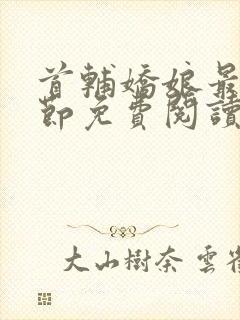 首輔嬌娘最
節免費閱讀
大山樹奈 雲雀